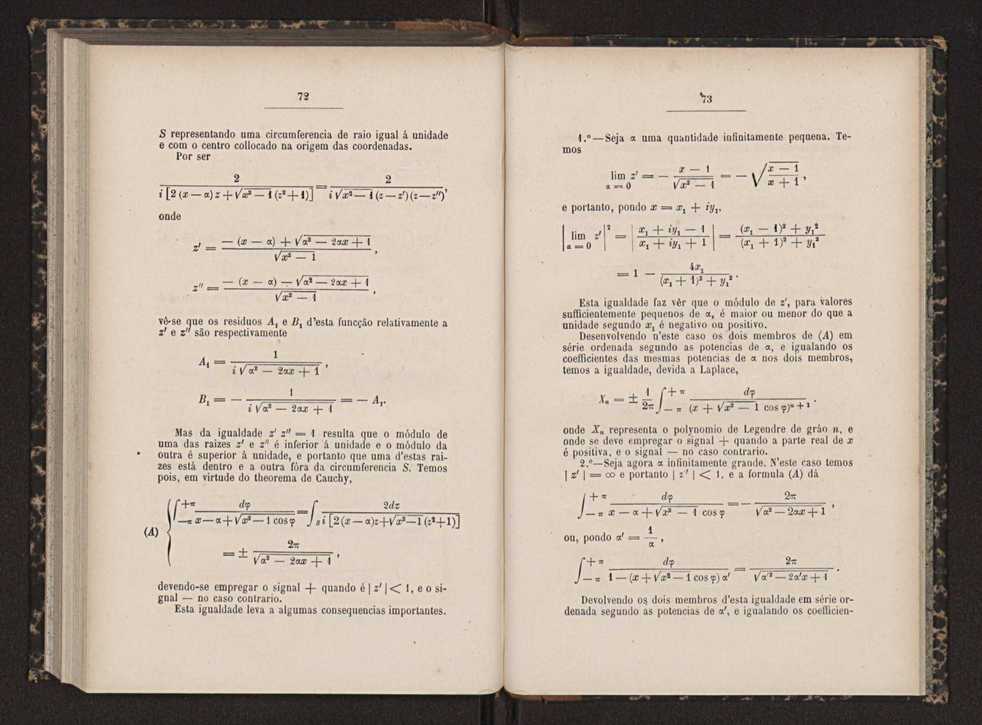 72
S representando uma circumferencia de raio igual á unidade
e com o centro collocado na origem das coordenadas.
Por ser
2/(i [2 (x — α) z + √(x² — 1) (z² + 1)]) = 2/(i √(x² — 1) (z — z′) (z — z″)),
onde
z′ = (— (x — α) + √(α² — 2αx + 1))/√(x² — 1),
z″ = (— (x — α) — √(α² — 2αx + 1))/√(x² — 1),
vê-se que os residuos A₁ e B₁ d'esta funcção relativamente a
z′ e z″ são respectivamente
A₁ = 1/(i √(α² — 2αx + 1)),
B₁ = — 1/(i √(α² — 2αx + 1)) = — A₁.
Mas da igualdade z′ z″ = 1 resulta que o módulo de
uma das raizes z′ e z″ é inferior á unidade e o módulo da
outra é superior á unidade, e portanto que uma d'estas rai-
zes está dentro e a outra fóra da circumferencia S. Temos
pois, em virtude do theorema de Cauchy,
(A) { ∫₋π^{+π} dφ/(x — α + √(x² — 1) cos φ) = ∫_S 2dz/(i [2 (x — α) z + √(x² — 1) (z² + 1)])
= ± 2π/√(α² — 2αx + 1),
devendo-se empregar o signal + quando é | z′ | < 1, e o si-
gnal — no caso contrario.
Esta igualdade leva a algumas consequencias importantes.
73
1.º — Seja α uma quantidade infinitamente pequena. Te-
mos
lim_{α = 0} z′ = — (x — 1)/√(x² — 1) = — √((x — 1)/(x + 1)),
e portanto, pondo x = x₁ + iy₁,
| lim_{α = 0} z′ |² = | (x₁ + iy₁ — 1)/(x₁ + iy₁ + 1) | = ((x₁ — 1)² + y₁²)/((x₁ + 1)² + y₁²)
= 1 — 4x₁/((x₁ + 1)² + y₁²).
Esta igualdade faz vêr que o módulo de z′, para valores
sufficientemente pequenos de α, é maior ou menor do que a
unidade segundo x₁ é negativo ou positivo.
Desenvolvendo n'este caso os dois membros de (A) em
série ordenada segundo as potencias de α, e igualando os
coefficientes das mesmas potencias de α nos dois membros,
temos a igualdade, devida a Laplace,
Xₙ = ± 1/2π ∫₋π^{+π} dφ/(x + √(x² — 1) cos φ)ⁿ⁺¹.
onde Xₙ representa o polynomio de Legendre de gráo n, e
onde se deve empregar o signal + quando a parte real de x
é positiva, e o signal — no caso contrario.
2.º — Seja agora α infinitamente grande. N'este caso temos
| z′ | = ∞ e portanto | z″ | < 1, e a formula (A) dá
∫₋π^{+π} dφ/(x — α + √(x² — 1) cos φ) = — 2π/√(α² — 2αx + 1),
ou, pondo α′ = 1/α,
∫₋π^{+π} dφ/(1 — (x + √(x² — 1) cos φ) α′) = 2π/√(α′² — 2α′x + 1).
Devolvendo os dois membros d'esta igualdade em série or-
denada segundo as potencias de α′, e igualando os coefficien-